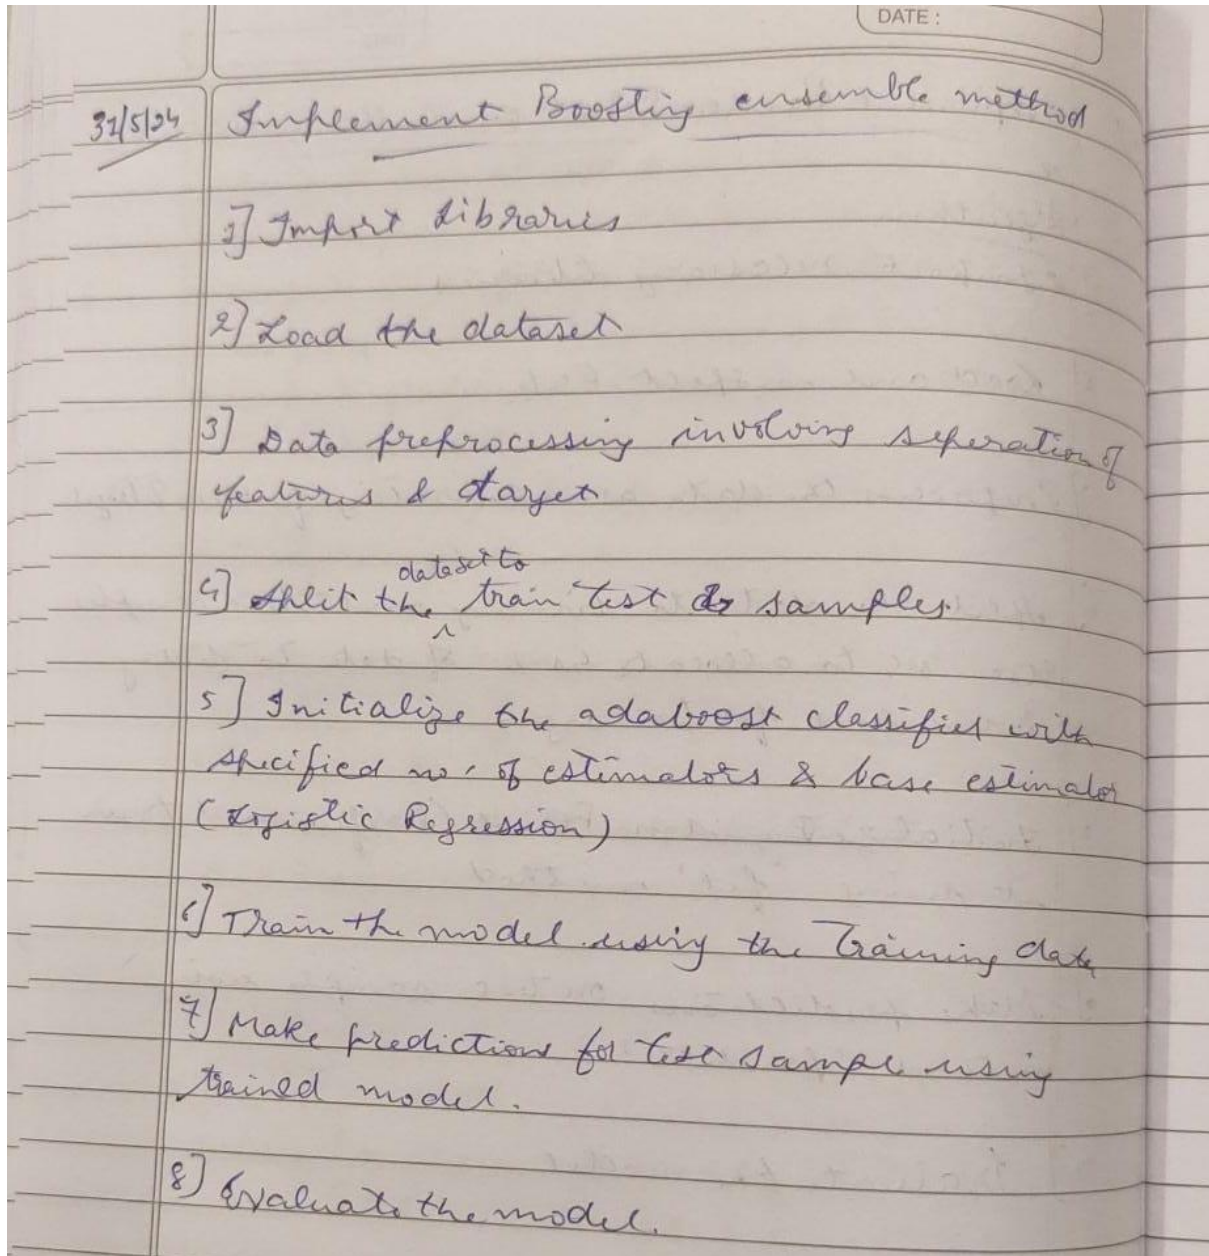 DATE :
31/5/24 Implement Boosting ensemble method
1] Import Libraries
2] Load the dataset
3] Data preprocessing involving seperation of
features & target
4] Split the dataset to train test samples.
5] Initialize the adaboost classifier with
specified no. of estimators & base estimator
(Logistic Regression)
6] Train the model using the Training data
7] Make predictions for test sample using
trained model.
8] Evaluate the model.